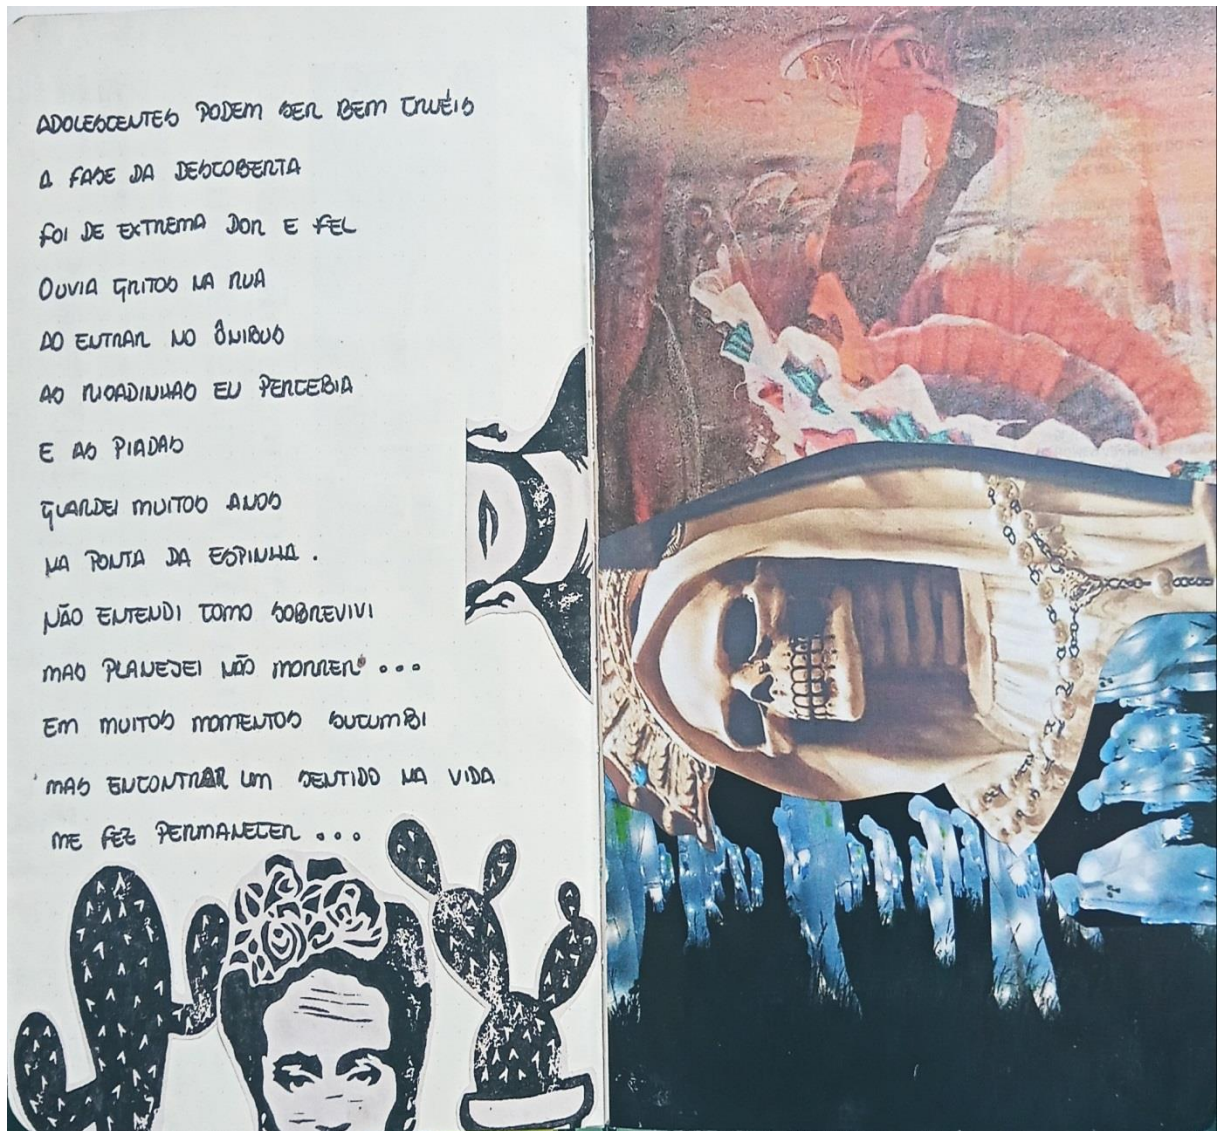 ADOLESCENTES PODEM SER BEM CRUÉIS
A FASE DA DESCOBERTA
FOI DE EXTREMA DOR E FEL
OUVIA GRITOS NA RUA
AO ENTRAR NO ÔNIBUS
AO RISADINHAS EU PERCEBIA
E AS PIADAS
GUARDEI MUITOS ANOS
NA PONTA DA ESPINHA .
NÃO ENTENDI COMO SOBREVIVI
MAS PLANEJEI NÃO MORRER ...
EM MUITOS MOMENTOS SUCUMBI
MAS ENCONTRAR UM SENTIDO NA VIDA
ME FEZ PERMANECER ...